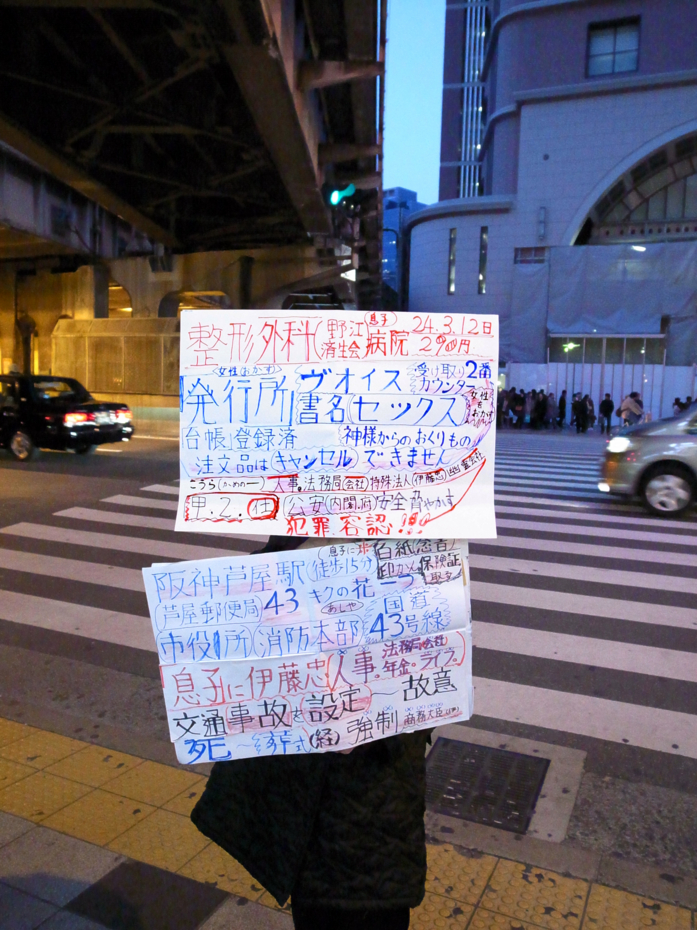 整形外科(野江済生会)(息子)病院 24.3.12日 2900円
(女性(おかす)
発行所 ヴオイス 受け取り2番カウンター
書名(セックス) 女性をおかす
台帳登録済 (神様からのおくりもの
注文品は(キャンセル)できません
こうら(かめの一) 人事.法務局(会社)特殊法人(伊藤忠)
甲.2.(住) (公安(内閣.府)安全脅やかす
犯罪.容認!!!
(息子に 白紙
阪神芦屋駅(徒歩15分 印かん 保険証
芦屋郵便局 43 キクの花一つ
(あしや)
市役所 消防本部 国道43号線
息子に伊藤忠.人事.法務局(会社)年金.ライフ.)
交通事故を設定〜故意
死〜葬式(経)強制